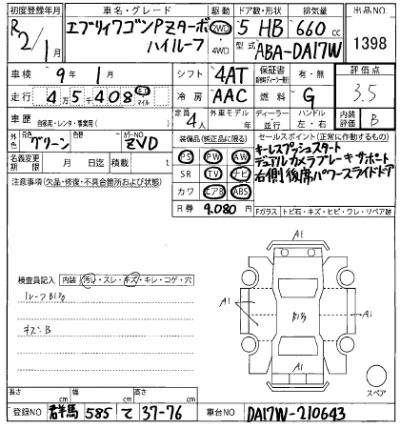 初度登録年月 車名・グレード 駆動 ドア数・形状 排気量 出品NO
R2/1月 エブリィワゴンPZターボ ハイルーフ 2WD 4WD 5 HB 660 cc 1398
型式 ABA-DA17W
車検 9年1月 シフト 4AT 保証書 有・無 評価点
走行 45408 km マイル 冷房 AAC 燃料 G 3.5
車歴 自家用・レンタ・事業用( ) 定員 4人 外車モデル 年 ディーラー 並行 ハンドル 左・右 内装評価 B
外色 元色 グリーン カラーNO ZVD 装備品(純正品に限る) セールスポイント(正常に作動するもの)
名義変更期限 月 日迄 積載 t PS PW AW キーレスプッシュスタート
注意事項(欠品・修復・不具合箇所および状態) SR TV ナビ デュアルカメラブレーキサポート
カワ エアB ABS 右側後席パワースライドドア
R券 9,080円 Fガラス トビ石・キズ・ヒビ・ワレ・リペア跡
A1
検査員記入 内装 汚れ・スレ・キズ・キレ・コゲ・穴
A1 A1
キズB
A1
スペア
長さ cm 幅 cm 高さ cm
登録NO 群馬 585 て 37-76 車台NO DA17W-210643